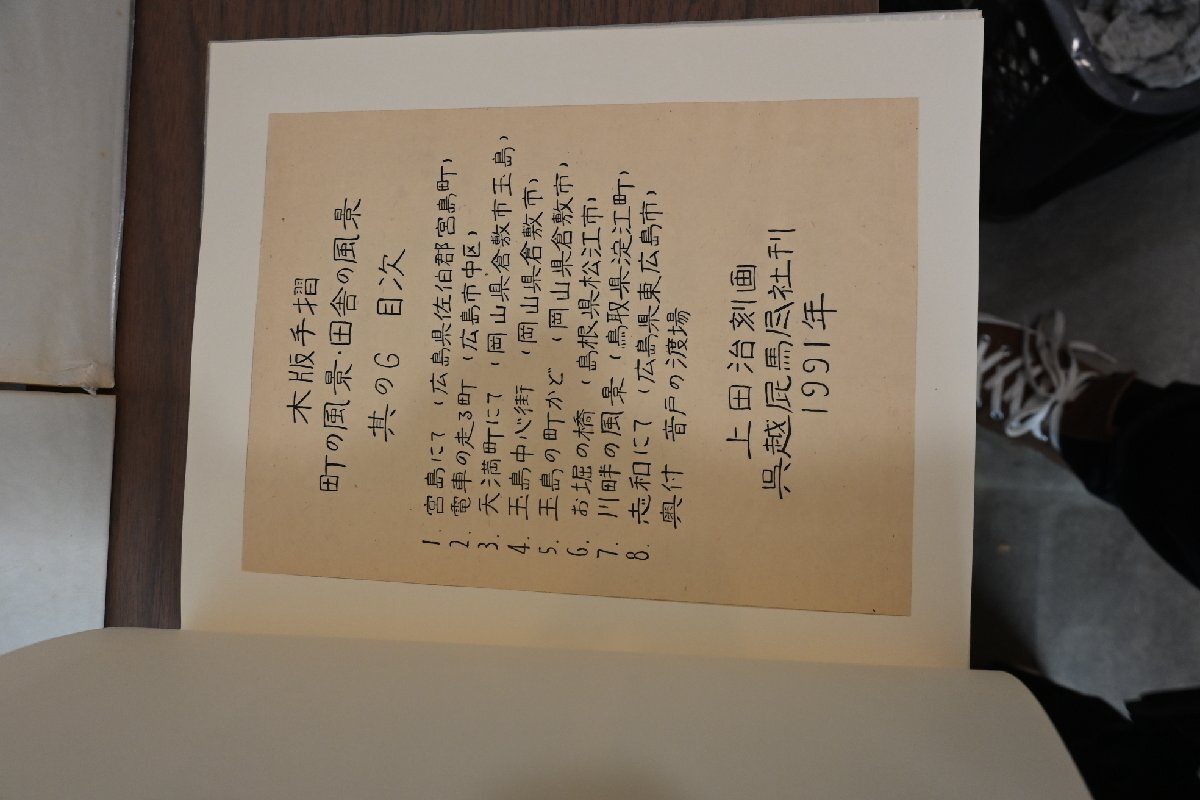 木版手摺
町の風景・田舎の風景
其の6 目次
1. 宮島にて (広島県佐伯郡宮島町)
2. 電車の走る町 (広島市中区)
3. 天満町にて (岡山県倉敷市玉島)
4. 玉島中心街 (岡山県倉敷市)
5. 玉島の町かど (岡山県倉敷市)
6. お堀の橋 (島根県松江市)
7. 川畔の風景 (鳥取県淀江町)
8. 志和にて (広島県東広島市)
奥付 音戸の渡場
上田治刻画
呉越屁馬尽社刊
1991年